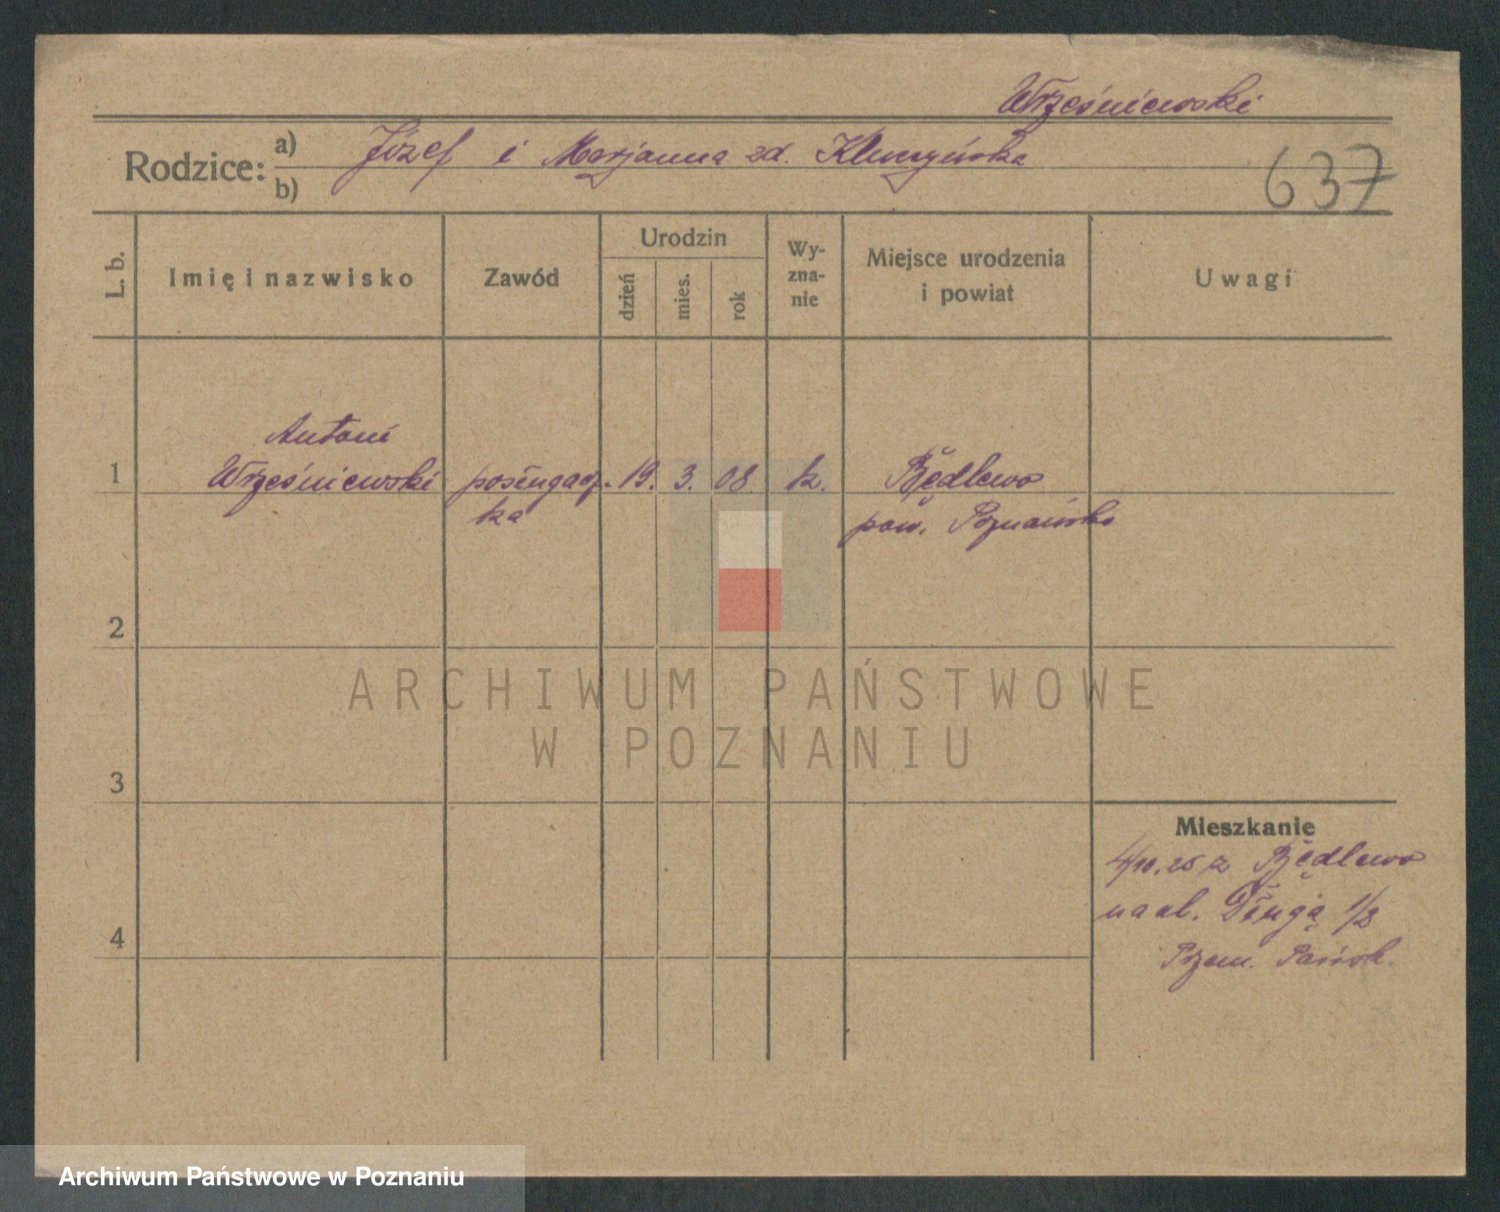 Wrześniewski
Rodzice:
a) Józef i Marjanna zd. Kluczyńska
b)
637
L. b.
Imię i nazwisko
Zawód
Urodzin
dzień
mies.
rok
Wy-
zna-
nie
Miejsce urodzenia
i powiat
Uwagi
Antoni
1 Wrześniewski 19. 3. 08 k. Będlewo
ka pow. Poznańsko
2
3
Mieszkanie
4/10.25 z Będlewo
na ul. Długą 1/3
4
ARCHIWUM PAŃSTWOWE
W POZNANIU
Archiwum Państwowe w Poznaniu